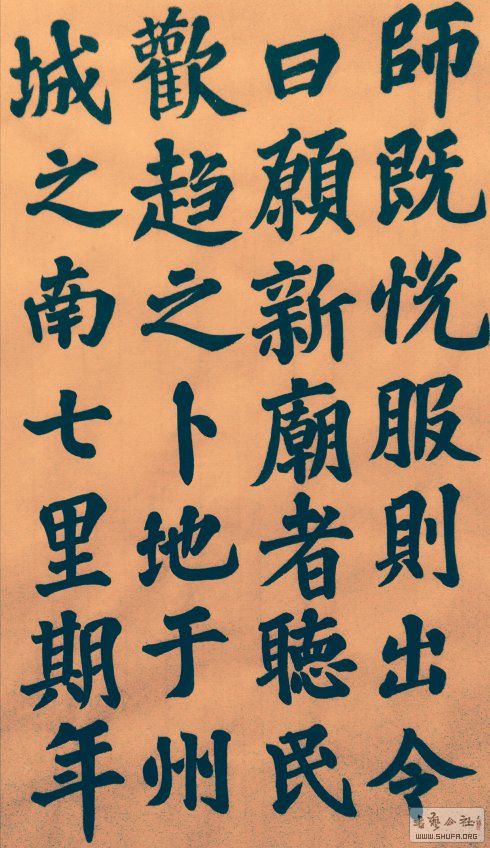 師既悦服則出令
曰願新廟者聴民
歡趋之卜地于州
城之南七里期年
WWW.SHUFA.ORG